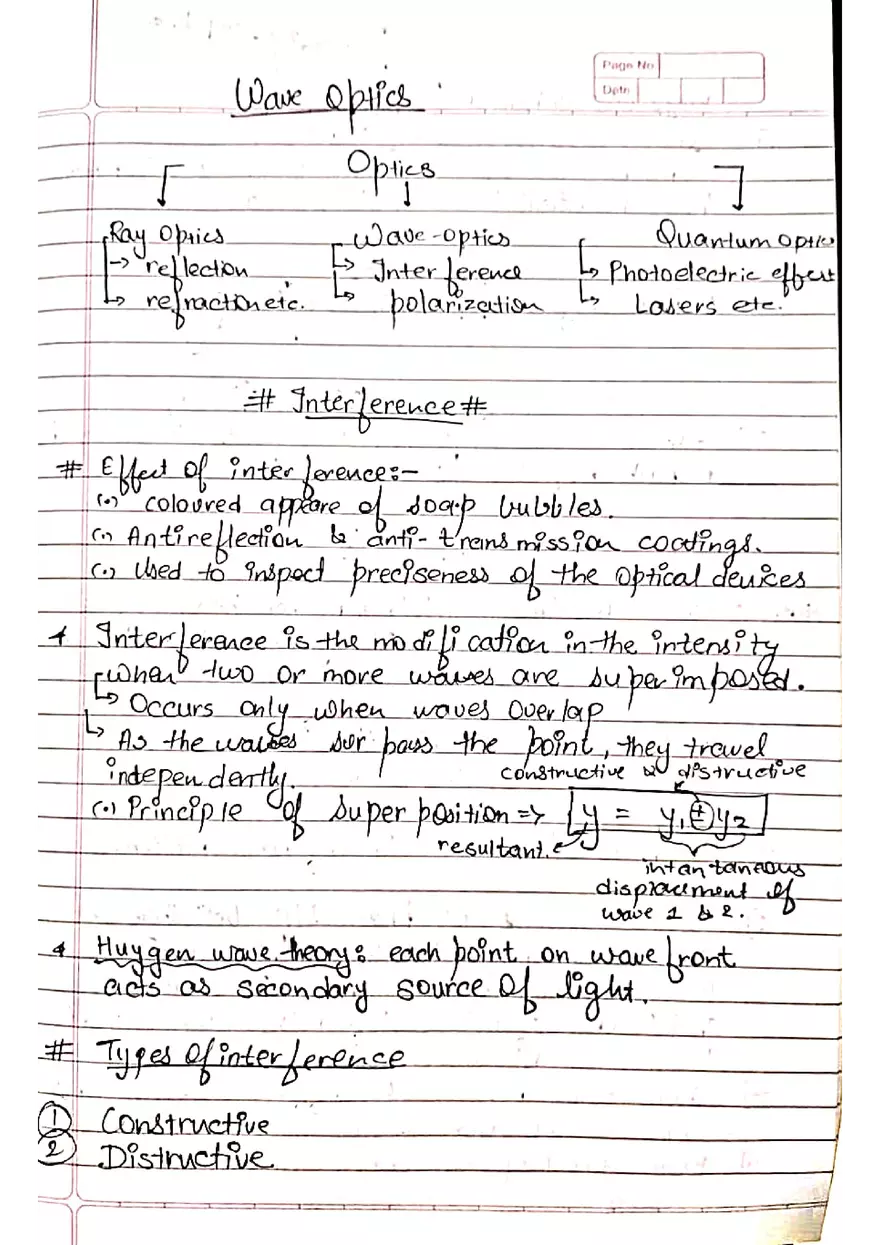 Page No
Date
Wave Optics
Optics
Ray Optics Wave-optics Quantum Optics
→ reflection ↳ Interference ↳ Photoelectric effect
↳ refraction etc. ↳ polarization ↳ Lasers etc.
# Interference #
# Effect Of interference:-
(•) coloured appeare of soap bubbles.
(•) Antireflection & anti-transmission coatings.
(•) Used to inspect preciseness of the optical devices
Interference is the modification in the intensity
when two or more waves are superimposed.
↳ Occurs only when waves overlap
↳ As the waves sur pass the point, they travel
independently.
constructive & distructive
(•) Principle of super position => y = y₁ ± y₂
resultant.
intantaneous
displacement of
wave 1 & 2.
Huygen wave theory: each point on wave front
acts as secondary source of light.
# Types Of interference
① Constructive
② Distructive